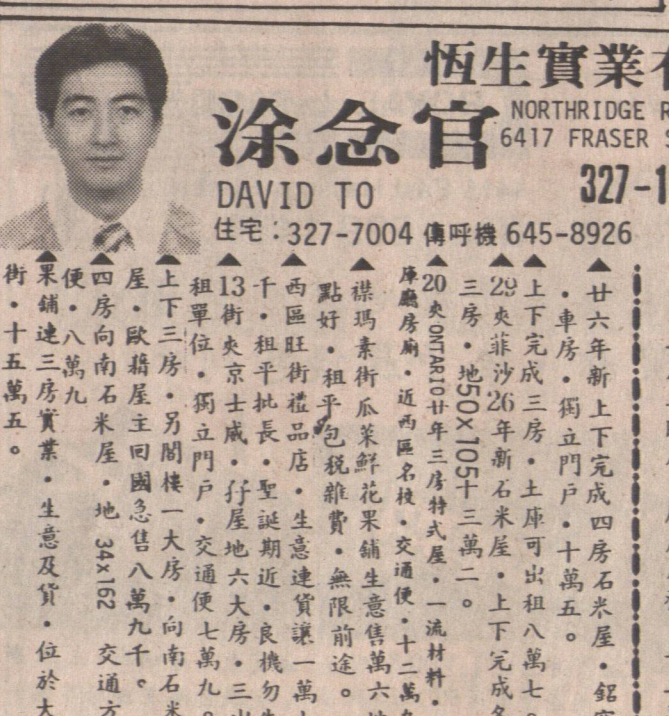 恆生實業
NORTHRIDGE
6417 FRASER
涂念官
327-1
DAVID TO
住宅：327-7004 傳呼機 645-8926
▲廿六年新上下完成四房石米屋．鋁窗
．車房．獨立門戶．十萬五。
▲上下完成三房．土庫可出租八萬七。
▲29夾菲沙26年新石米屋．上下完成各
三房．地50x105十三萬二。
▲20夾ONTARIO廿年三房特式屋．一流材料．
庫廳房廁．近西區名校．交通便．十二萬九
▲襟瑪素街瓜菜鮮花果鋪生意售萬六
點好．租平包税雜費．無限前途。
▲西區旺街禮品店．生意連貨讓一萬
千．租平批長．聖誕期近．良機勿失
▲13街夾京士威．孖屋地六大房．三出
租單位．獨立門戶．交通便七萬九。
▲上下三房．另閣樓一大房．向南石米
屋．歐籍屋主回國急售八萬九千。
▲四房向南石米屋．地 34x162 交通方
便．八萬九
▲果鋪連三房實業．生意及貨．位於大
街．十五萬五。